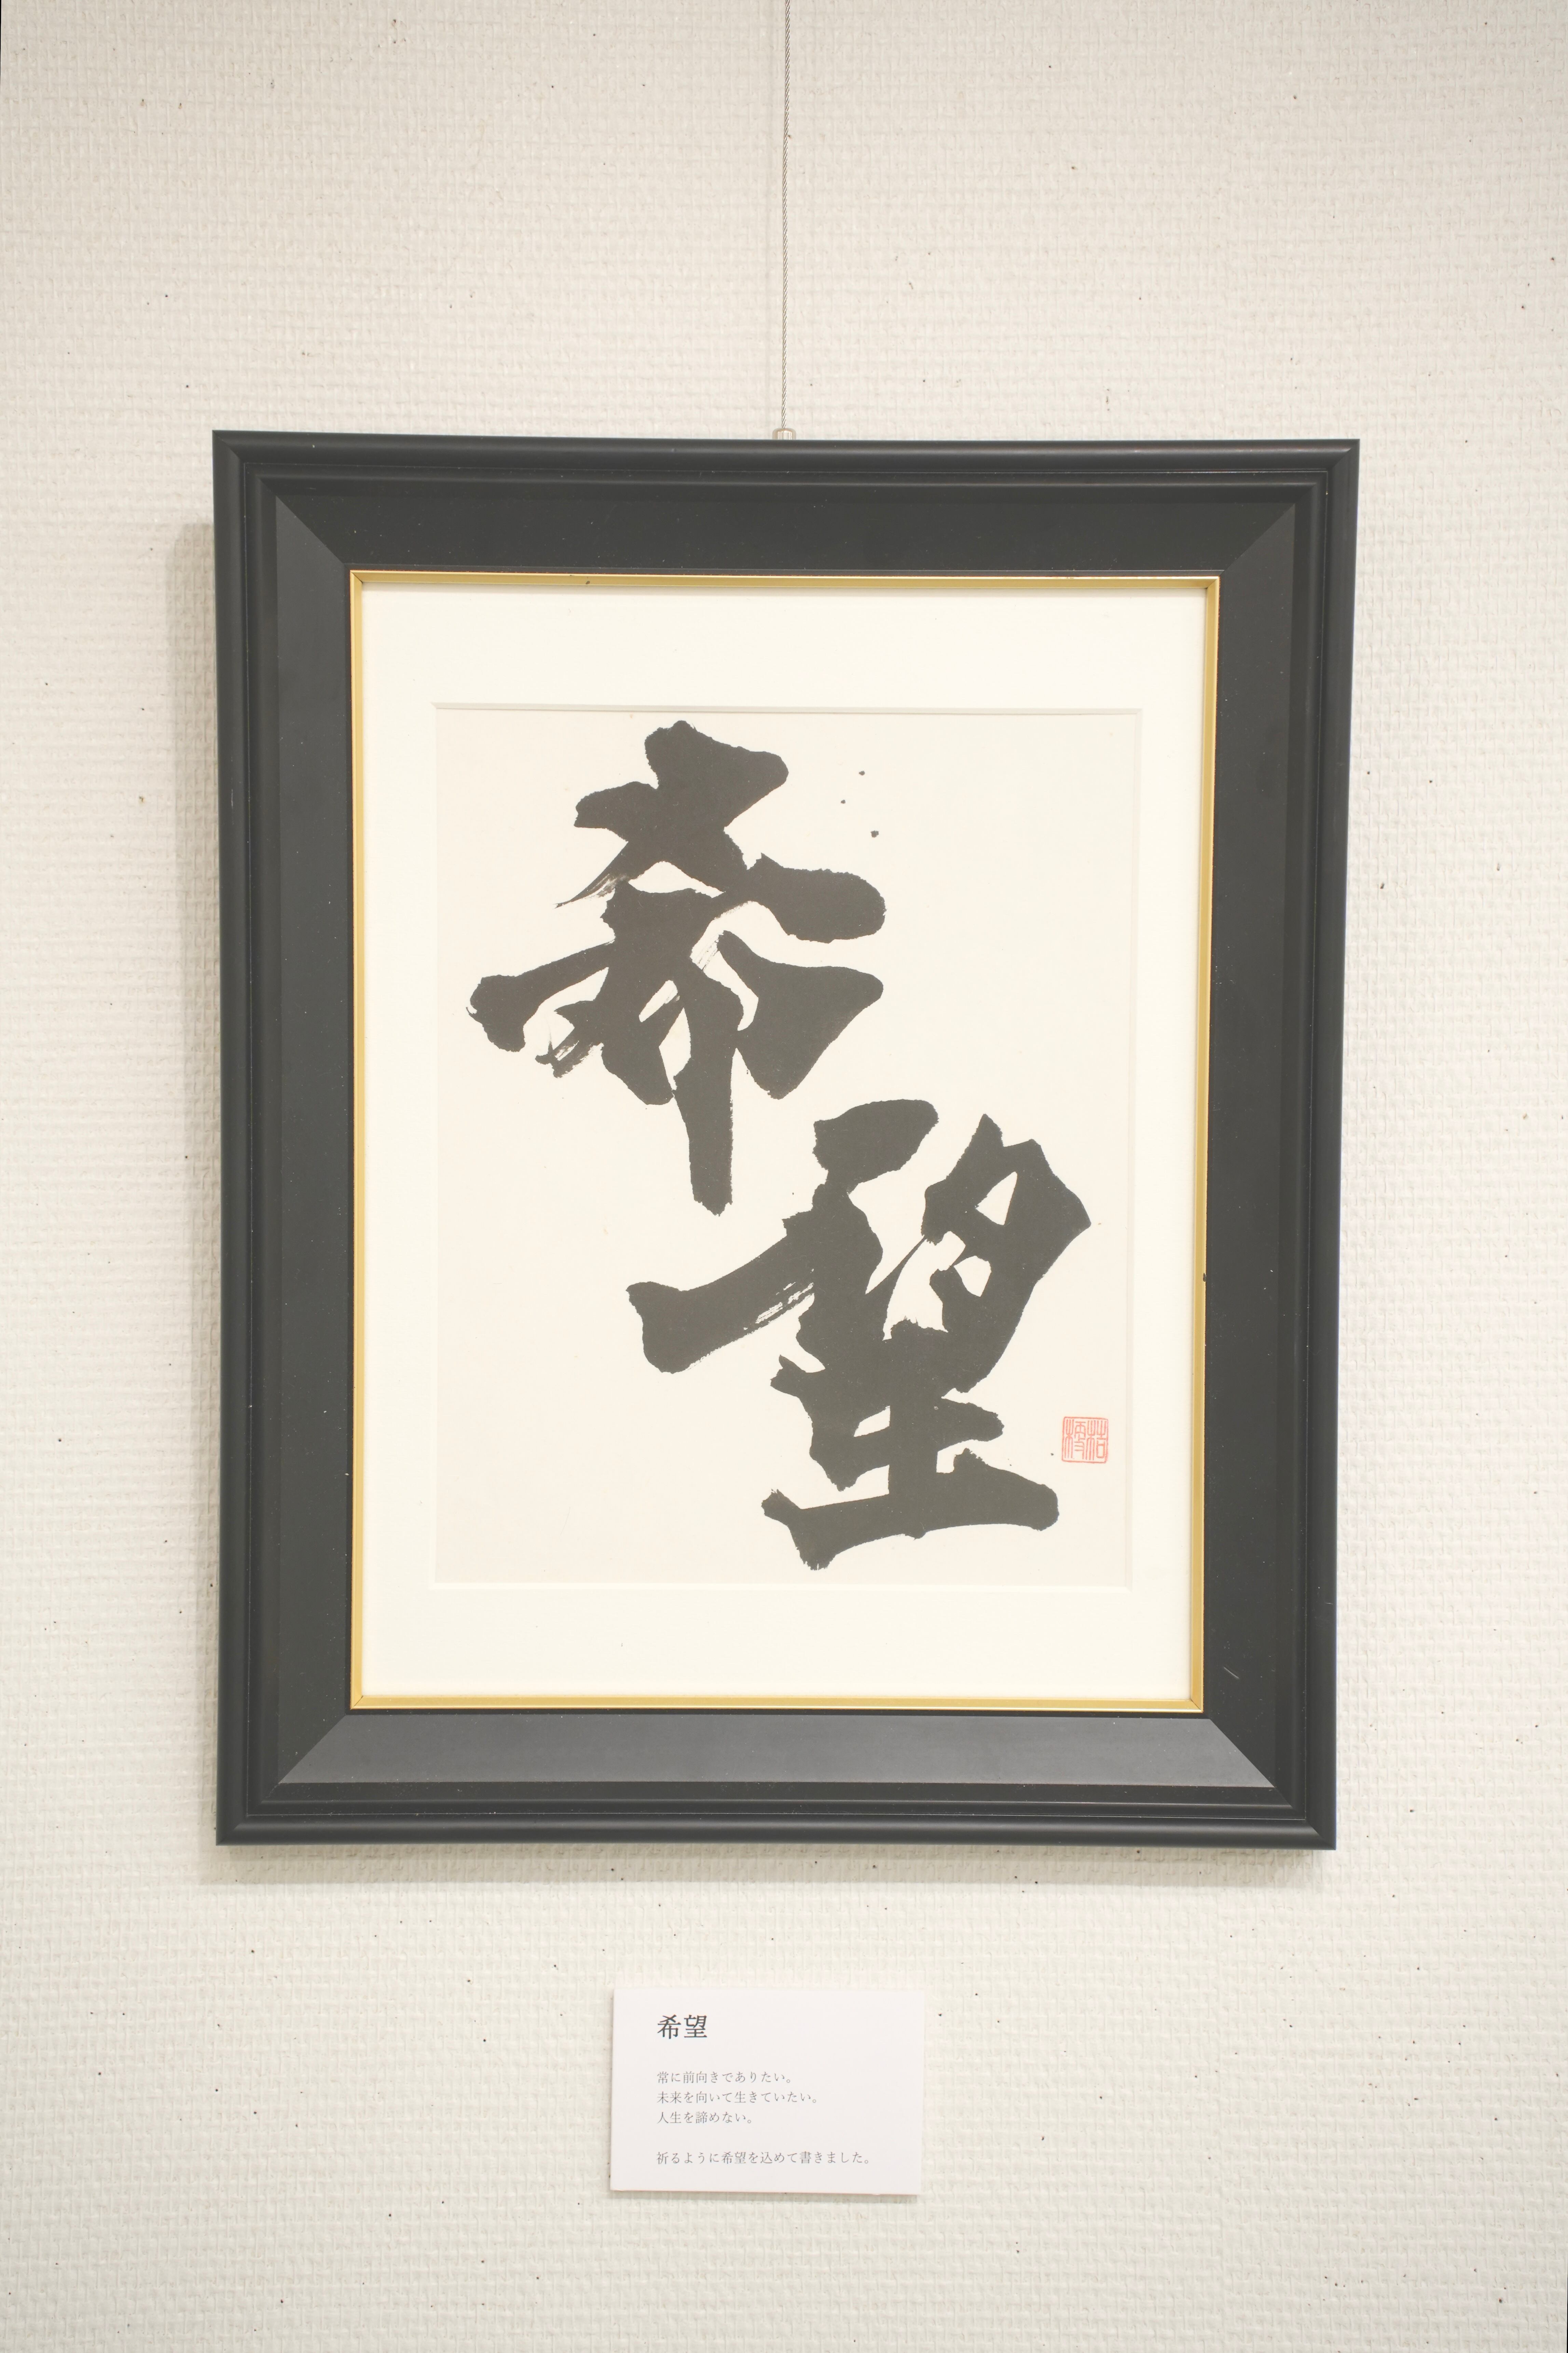 希
望
希望
常に前向きでありたい。
未来を向いて生きていたい。
人生を諦めない。
祈るように希望を込めて書きました。